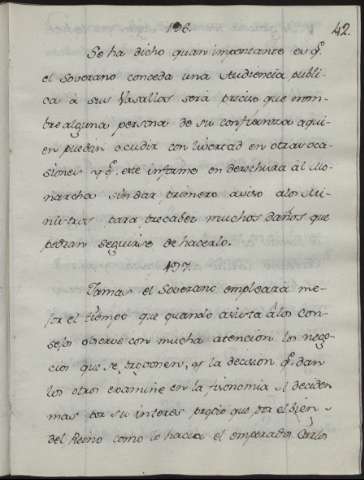 196.
42.
Se ha dicho quan importante es q.e
el Soverano conceda una Audiencia publi-
ca à sus Vasallos será preciso que nom-
bre alguna persona de su confianza à qui-
en puedan acudir con livertad en otras oca-
siones y q.e este informe en derechura al Mo-
narcha sin dar primero aviso à los Mi-
nistros para precaber muchos daños que
podran seguirse de hacerlo.
197.
Jamas el Soverano empleará me-
jor el tiempo que quando asista à los con-
sejos observe con mucha atencion los nego-
cios que se proponen, y la decision q.e dan
los otros examine en la fisionomia si deciden
mas por su interes propio que por el bien
del Reino como lo hacia el emperador Carlos